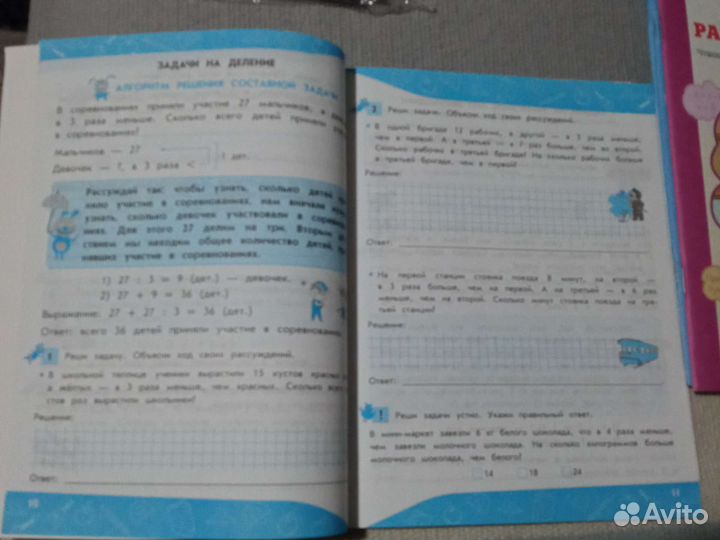 ЗАДАЧИ НА ДЕЛЕНИЕ
АЛГОРИТМ РЕШЕНИЯ СОСТАВНОЙ ЗАДАЧИ
В соревнованиях приняли участие 27 мальчиков, а
в 3 раза меньше. Сколько всего детей приняли
соревнованиях?
Мальчиков — 27
Девочек — ?, в 3 раза <
? дет.
Рассуждай так: чтобы узнать, сколько детей
няло участие в соревнованиях, нам вначале
узнать, сколько девочек участвовали в
ниях. Для этого 27 делим на три. Вторым
ствием мы находим общее количество детей,
нявших участие в соревнованиях.
1) 27 : 3 = 9 (дет.) — девочек.
2) 27 + 9 = 36 (дет.)
Выражение: 27 + 27 : 3 = 36 (дет.)
Ответ: всего 36 детей приняли участие в соревнованиях.
1 Реши задачу. Объясни ход своих рассуждений.
• В школьной теплице ученики вырастили 15 кустов красных
а жёлтых — в 3 раза меньше, чем красных. Сколько всего
стов роз вырастили школьники?
Решение:
Ответ:
10
2 Реши задачи. Объясни ход своих рассуждений.
• В одной бригаде 12 рабочих, в другой — в 3 раза меньше,
чем в первой. А в третьей — в 7 раз больше, чем во второй.
Сколько рабочих в третьей бригаде? На сколько рабочих больше
в третьей бригаде, чем в первой?
Решение:
Ответ:
• На первой станции стоянка поезда 8 минут, на второй —
в 3 раза больше, чем на первой. А на третьей — в 6 раз
меньше, чем на второй. Сколько минут стоянка поезда на тре-
тьей станции?
Решение:
Ответ:
! Реши задачи устно. Укажи правильный ответ.
В мини-маркет завезли 6 кг белого шоколада, что в 4 раза меньше,
чем завезли молочного шоколада. На сколько килограммов больше
молочного шоколада, чем белого?
14 18 24
11
РА
Avito